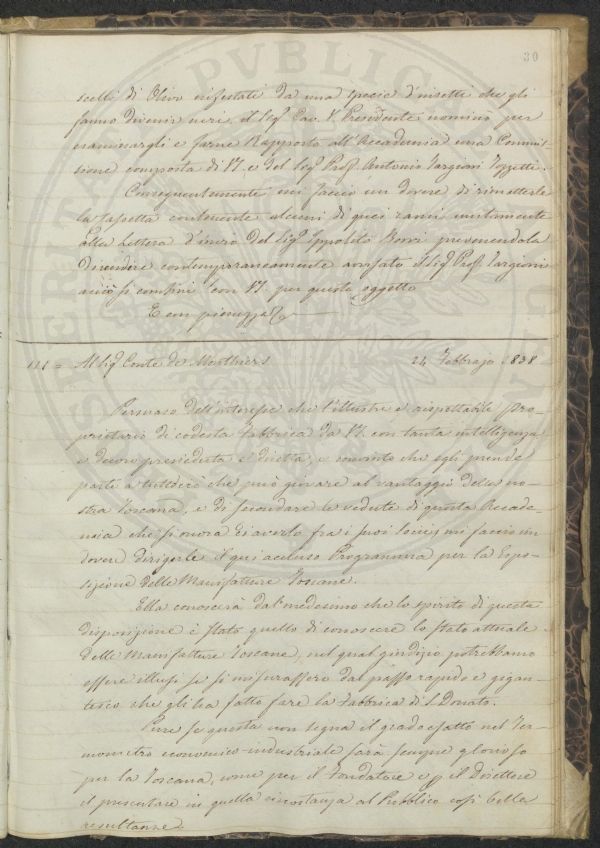 30
scelli di Olivo infestati da una specie d'insetti che gli
fanno divenir neri, il Sig.r Cav. V. Presidente nominò per
esaminargli e farne Rapporto all'Accademia una Commis-
sione composta di VS. e del Sig.r Prof. Antonio Targioni Tozzetti.
Conseguentemente mi faccio un dovere di rimetterle
la Cassetta contenente alcuni di quei rami unitamente
alla Lettera d'invio del Sig.r Ippolito prevenendola
di rendere contemporaneamente avvisato il Sig.r Prof. Targioni
acciò si combini con VS. per questo oggetto
E con pienezza &
111 = Al Sig.r Conte de Monthiers 24 Febbrajo 1838
Persuaso dell'interesse che l'illustre e rispettabile Pro-
prietario di codesta Fabbrica da VS. con tanta intelligenza
e decoro preseduta e diretta, e convinto che egli prende
parte a tuttociò che può giovare al vantaggio della no-
stra Toscana, e di secondare le vedute di questa Accade-
mia che si onora di averlo fra i suoi Socj, mi faccio un
dovere dirigerle il qui accluso Programma per la Espo-
sizione delle Manifatture Toscane.
Ella conoscerà dal medesimo che lo spirito di questa
disposizione è stato quello di conoscere lo stato attuale
delle Manifatture Toscane, nel qual giudizio potrebbamo
essere illusi se si misurassero dal passo rapido e gigan-
tesco che gli ha fatto fare la Fabbrica di S. Donato.
Pure se questa non segna il grado esatto nel Ter-
mometro economico-industriale sarà sempre glorioso
per la Toscana, come per il Fondatore e p il Direttore
il presentare in quella circostanza al Pubblico così belle
resultanze.